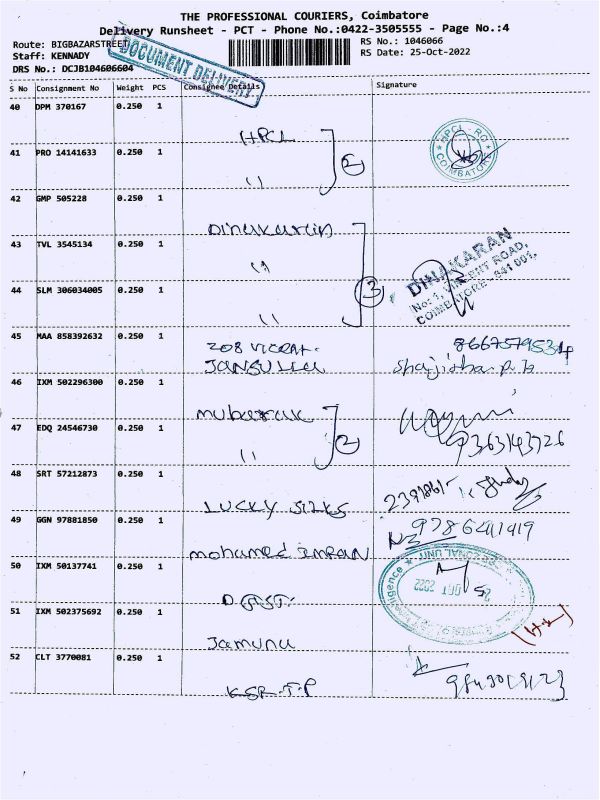 THE PROFESSIONAL COURIERS, Coimbatore
Delivery Runsheet - PCT - Phone No.:0422-3505555 - Page No.:4
Route: BIGBAZARSTREET
RS No.: 1046066
Staff: KENNADY
RS Date: 25-Oct-2022
DRS No.: DCJB104606604
DOCUMENT DELIVERY
S No Consignment No Weight PCS Consignee Details Signature
40 DPM 370167 0.250 1
HPCL
HPCL - RO
COIMBATORE
2
41 PRO 14141633 0.250 1
42 GMP 505228 0.250 1
Dinakaran
43 TVL 3545134 0.250 1
DINAKARAN
ROAD,
COIMBATORE - 641 001.
3
44 SLM 306034005 0.250 1
45 MAA 858392632 0.250 1
208
46 IXM 502296300 0.250 1
mubarak
47 EDQ 24546730 0.250 1
2
9363143726
48 SRT 57212873 0.250 1
LUCKY SILKS
49 GGN 97881850 0.250 1
mohamed Imran
50 IXM 50137741 0.250 1
OCT 2022
51 IXM 502375692 0.250 1
Jamuna
52 CLT 3770081 0.250 1